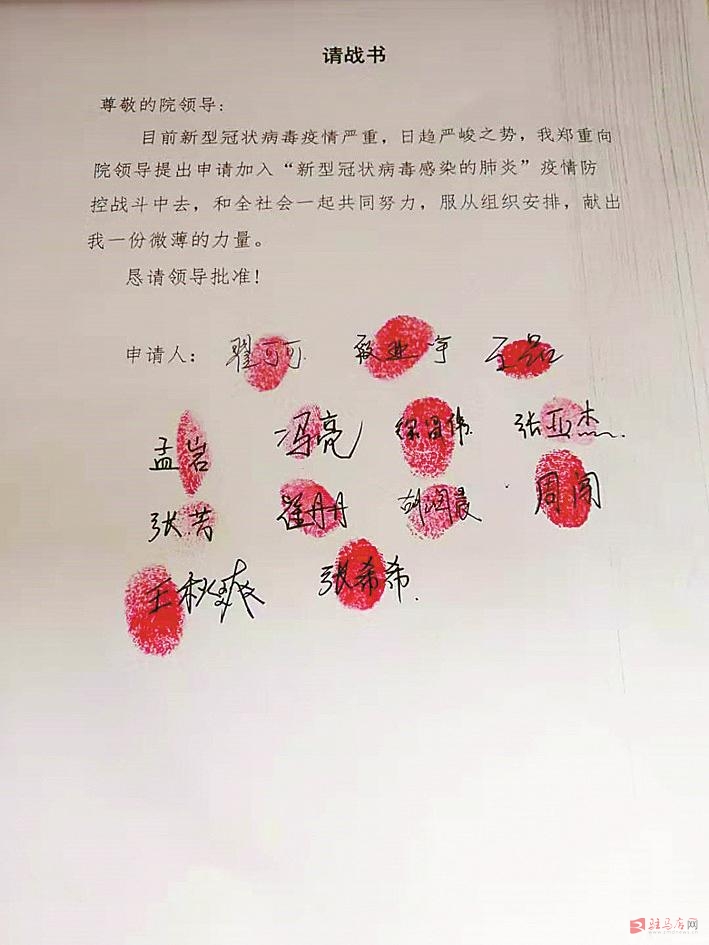 请战书
尊敬的院领导：
目前新型冠状病毒疫情严重，日趋严峻之势，我郑重向
院领导提出申请加入“新型冠状病毒感染的肺炎”疫情防
控战斗中去，和全社会一起共同努力，服从组织安排，献出
我一份微薄的力量。
恳请领导批准！
申请人： 翟可可 王磊
孟岩 冯亮 张亚杰
张芳 崔丹丹 周闯
王秋爽 张希希
驻马店网